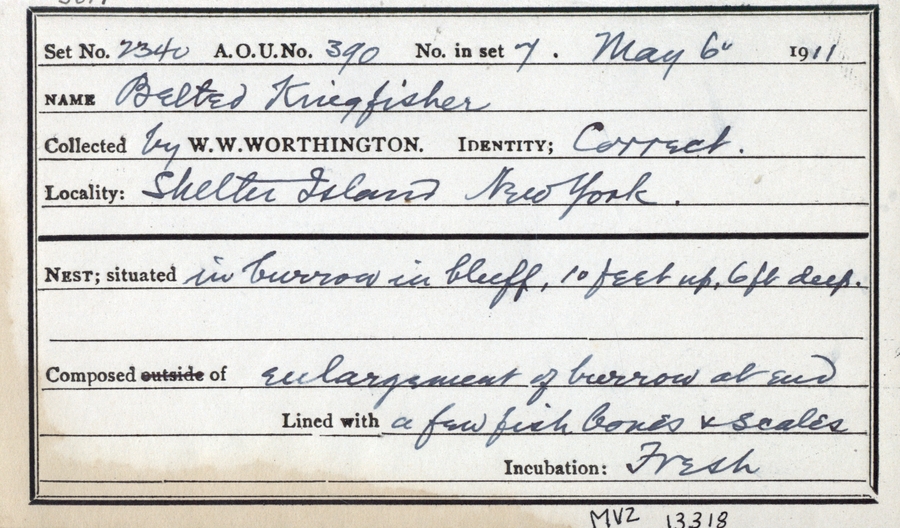 Set No. 2340 A.O.U.No. 390 No. in set 7. May 6" 1911
NAME Belted Kingfisher
Collected by W.W.WORTHINGTON. IDENTITY; Correct.
Locality: Shelter Island New York.
NEST; situated in burrow in bluff, 10 feet up, 6ft deep.
Composed outside of enlargement of burrow at end
Lined with a few fish bones & scales
Incubation: Fresh
MVZ 13318